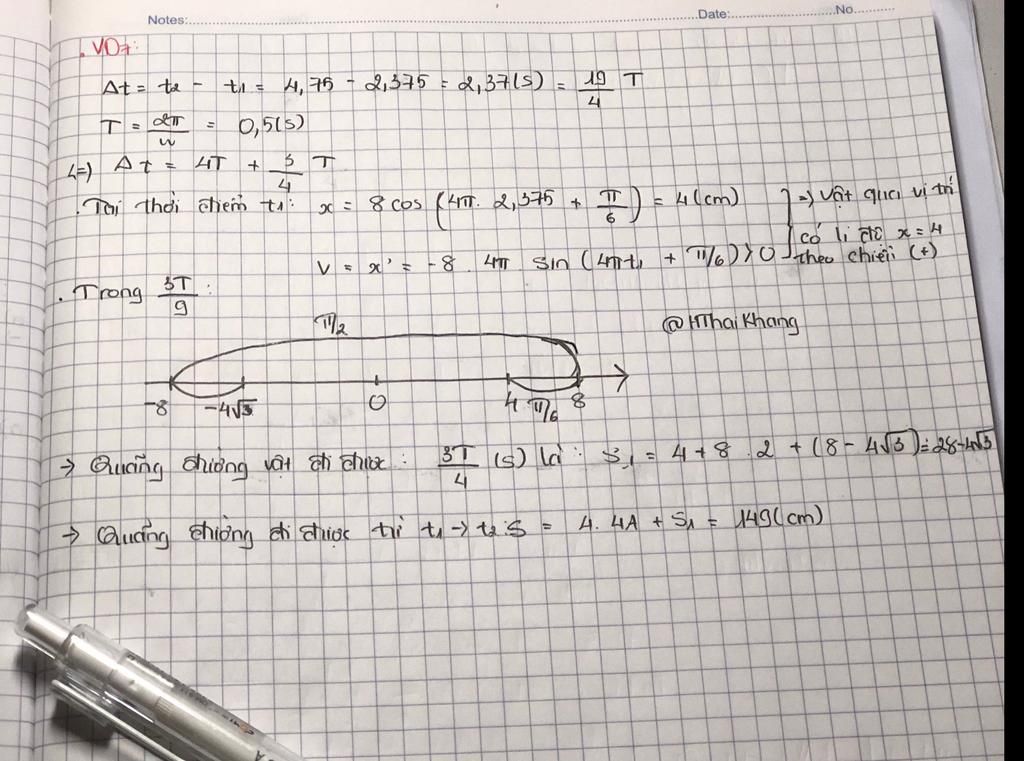 Notes: Date: No.
. VD7:
Δt = t₂ - t₁ = 4,75 - 2,375 = 2,37(s) = 19/4 T
T = 2π/ω = 0,5(s)
(=) Δt = 4T + 3/4 T
. Tại thời điểm t₁: x = 8 cos (4π. 2,375 + π/6) = 4(cm) } => vật qua vị trí
có li độ x = 4
v = x' = -8 . 4π sin (4πt₁ + π/6) > 0 theo chiều (+)
. Trong 3T/9 :
π/2
@HThaiKhang
-8 -4√3 0 4 π/6 8
→ Quãng đường vật đi được : 3T/4 (s) là : S₁ = 4 + 8 . 2 + (8 - 4√3) = 28-4√3
→ Quãng đường đi được từ t₁ → t₂: S = 4. 4A + S₁ = 149(cm)